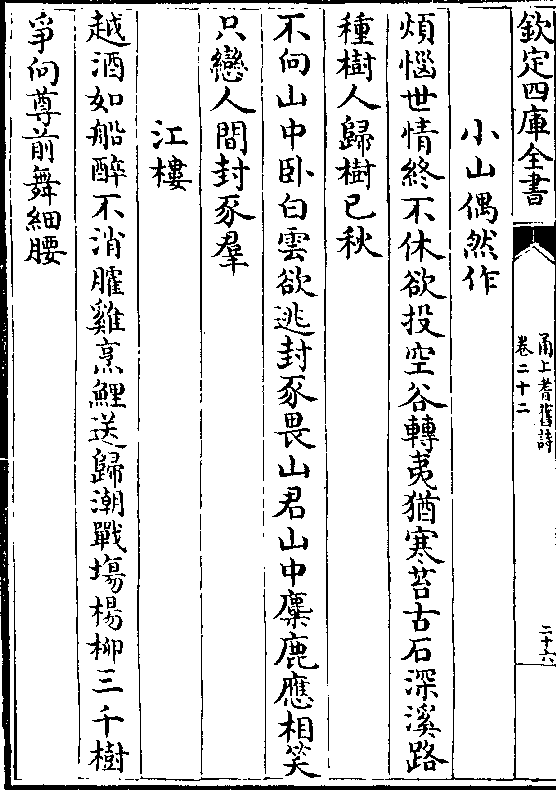 欽定四庫全書
甬上耆舊詩
卷二十二
二十六
小山偶然作
煩惱世情終不休欲投空谷轉夷猶寒苔古石深溪路
種樹人歸樹已秋
不向山中卧白雲欲逃封豕畏山君山中麋鹿應相笑
只戀人間封豕羣
江樓
越酒如船醉不消臛雞烹鯉送歸潮戰塲楊柳三千樹
爭向尊前舞細腰